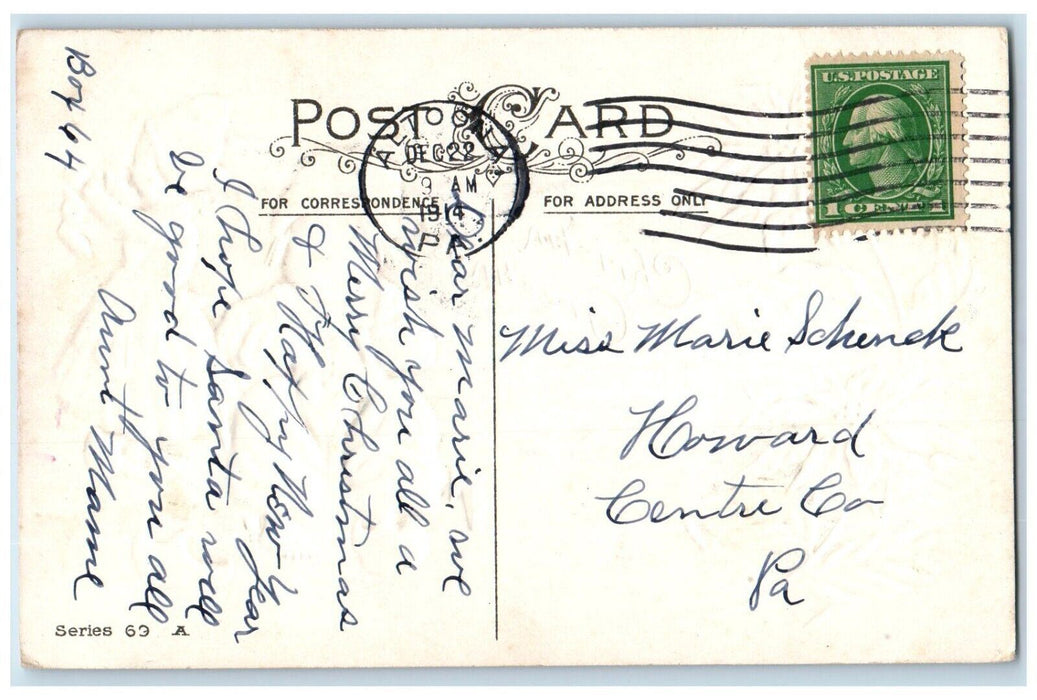 POST CARD
ALTOONA
DEC 22
9 AM
1914
PA
U.S. POSTAGE
1 CENT 1
FOR CORRESPONDENCE
FOR ADDRESS ONLY
Dear Marie, we
wish you all a
Merry Christmas
& Happy New Year
I hope Santa will
be good to you all
Aunt Mame
Box 64
Miss Marie Schenck
Howard
Centre Co
Pa
Series 69 A